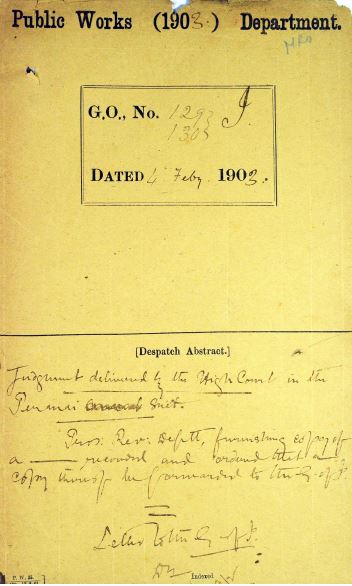 Public Works (1903.) Department.
G.O., No. 129
1305 I.
DATED 4 Feby. 1903.
[Despatch Abstract.]
Judgment delivered by the High Court in the
Permai Suit.
Pros: Rev: Deptt, furnishing copy of
a —— recorded and ordered that a
copy thereof be forwarded to the G. of I.
Letter to the G. of I.
P. W. 25.
Indexed